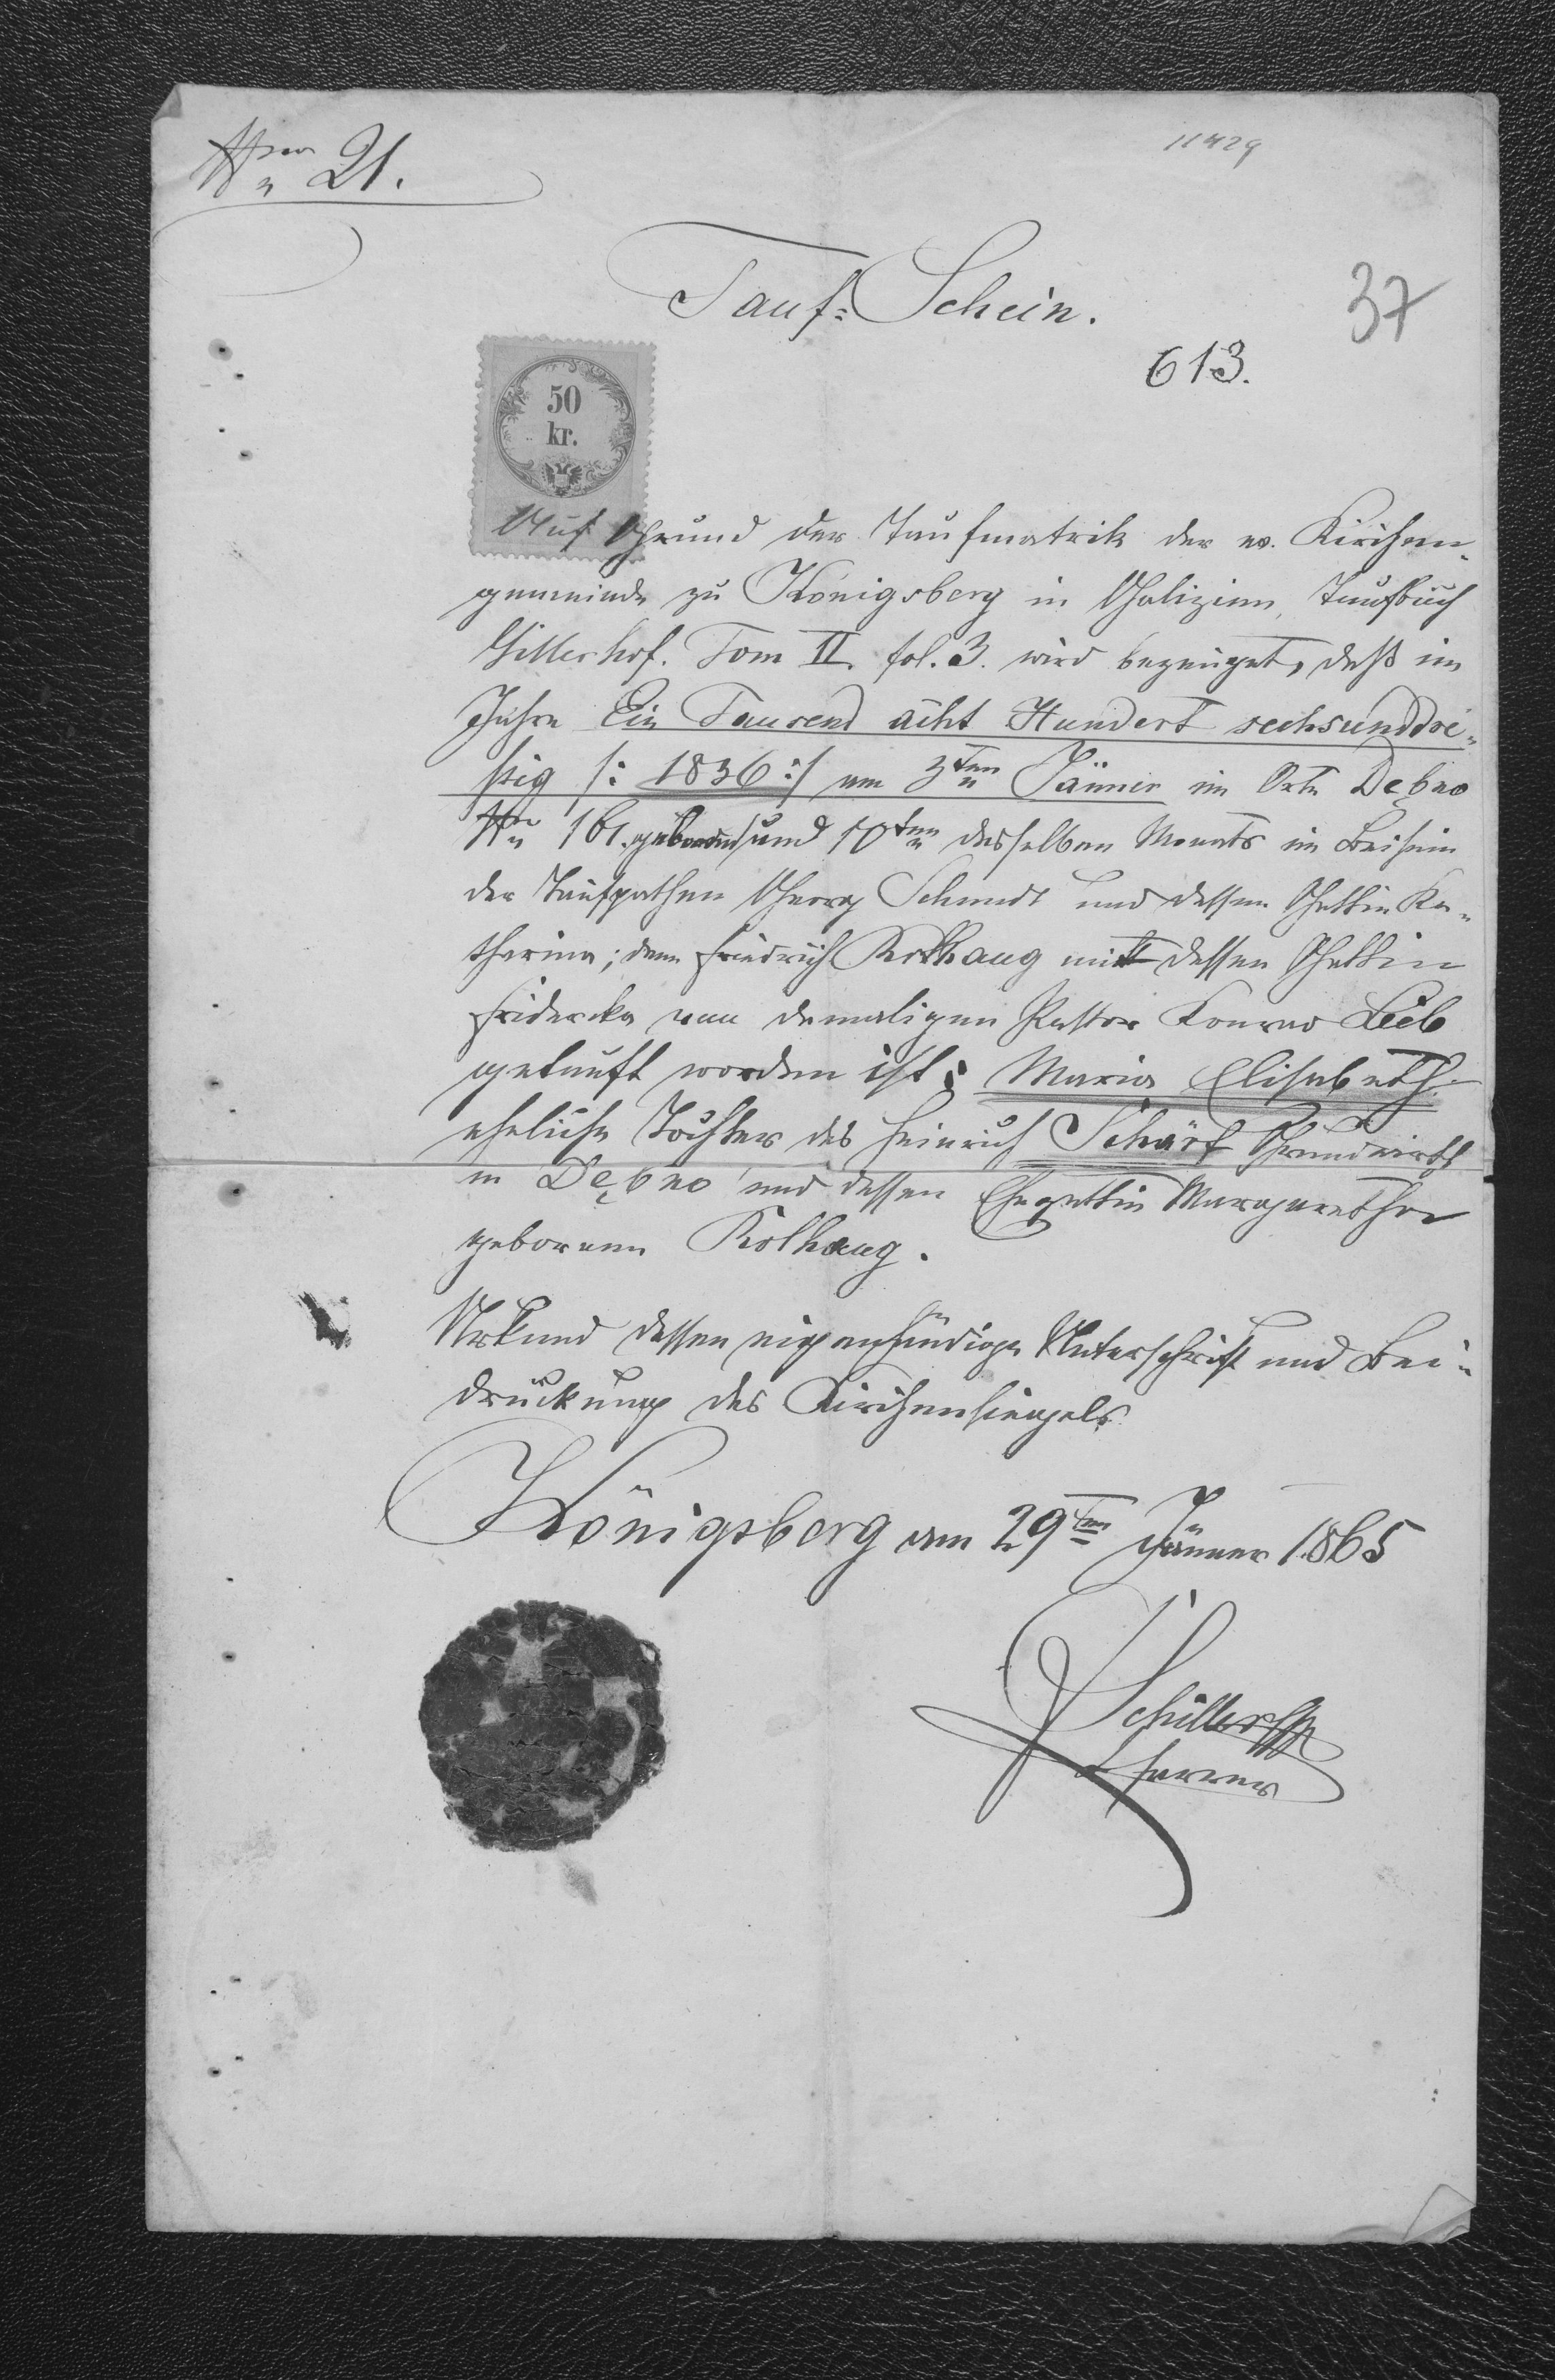 Nro 21.
11429
Tauf=Schein.
37
613.
50
kr.
Auf Grund der Taufmatrik der ev. Kirchen-
gemeinde zu Königsberg in Galizien, Taufbuch
Gillershof. Tom II. fol. 3. wird bezeuget, daß im
Jahre Ein Tausend acht Hundert sechsunddrei-
ßig /: 1836 :/ am 3ten Jänner im Orte Dębno
Nro 161. geboren und 10ten desselben Monats im Beisein
der Taufpathen Georg Schmidt und dessen Gattin Ka-
tharina; dem Friedrich Kolhaug mit dessen Gattin
Fridercka vom damaligen Pastor Konrad Lieb
getauft worden ist: Maria Elisabeth.
eheliche Tochter des Heinrich Scharf Grundwirth
in Dębno und dessen Ehegattin Margaretha
geborenen Kolhaug.
Urkund dessen eigenhändige Unterschrift und Bei-
drückung des Kirchensiegels.
Königsberg am 29ten Jänner 1865
Schiller
Pfarrer